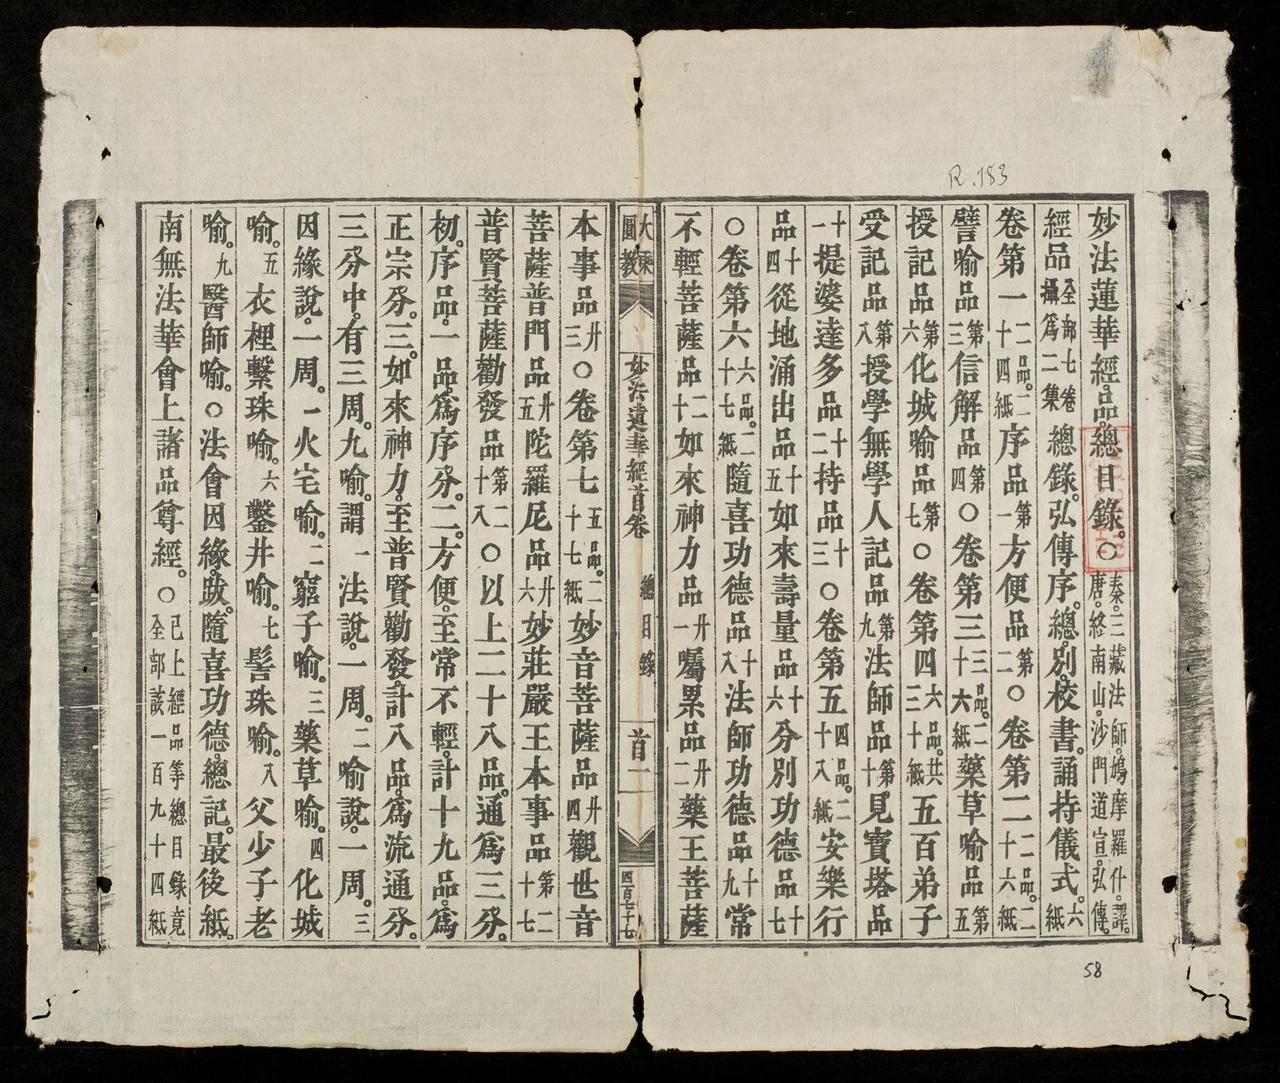 R.183
妙法蓮華經品總目錄。○秦。三藏法師。鳩摩羅什。譯。唐。終南山。沙門道宣。弘傳。
經品全部七卷攝爲二集總錄。弘傳序。總別。校書。誦持儀式。六紙
卷第一二品。二十四紙序品第一方便品第二○卷第二二品。二十六紙
譬喻品第三信解品第四○卷第三三品。二十六紙藥草喻品第五
授記品第六化城喻品第七○卷第四六品。共三十紙五百弟子
受記品第八授學無學人記品第九法師品第十見寶塔品
十一提婆達多品十二持品十三○卷第五四品。二十八紙安樂行
品十四從地涌出品十五如來壽量品十六分別功德品十七
○卷第六六品。二十七紙隨喜功德品十八法師功德品十九常
不輕菩薩品二十如來神力品廿一囑累品廿二藥王菩薩
大乘圓教
妙法蓮華經首卷
總目錄
首二
四百七十七
本事品廿三○卷第七五品。二十七紙妙音菩薩品廿四觀世音
菩薩普門品廿五陀羅尼品廿六妙莊嚴王。本事品第二十七
普賢菩薩勸發品第二十八○以上二十八品。通爲三分。
初。序品。一品。爲序分。二。方便。至常不輕。計十九品。爲
正宗分。三。如來神力。至普賢勸發。計八品。爲流通分。
三分中。有三周。九喻。謂一法說。一周。二喻說。一周。三
因緣說。一周。一火宅喻。二窮子喻。三藥草喻。四化城
喻。五衣裡繫珠喻。六鑿井喻。七髻珠喻。八父少子老
喻。九醫師喻。○法會因緣。跋。隨喜功德。總記。最後紙。
南無法華會上諸品尊經。○已上經品等總目錄竟全部該一百九十四紙
58